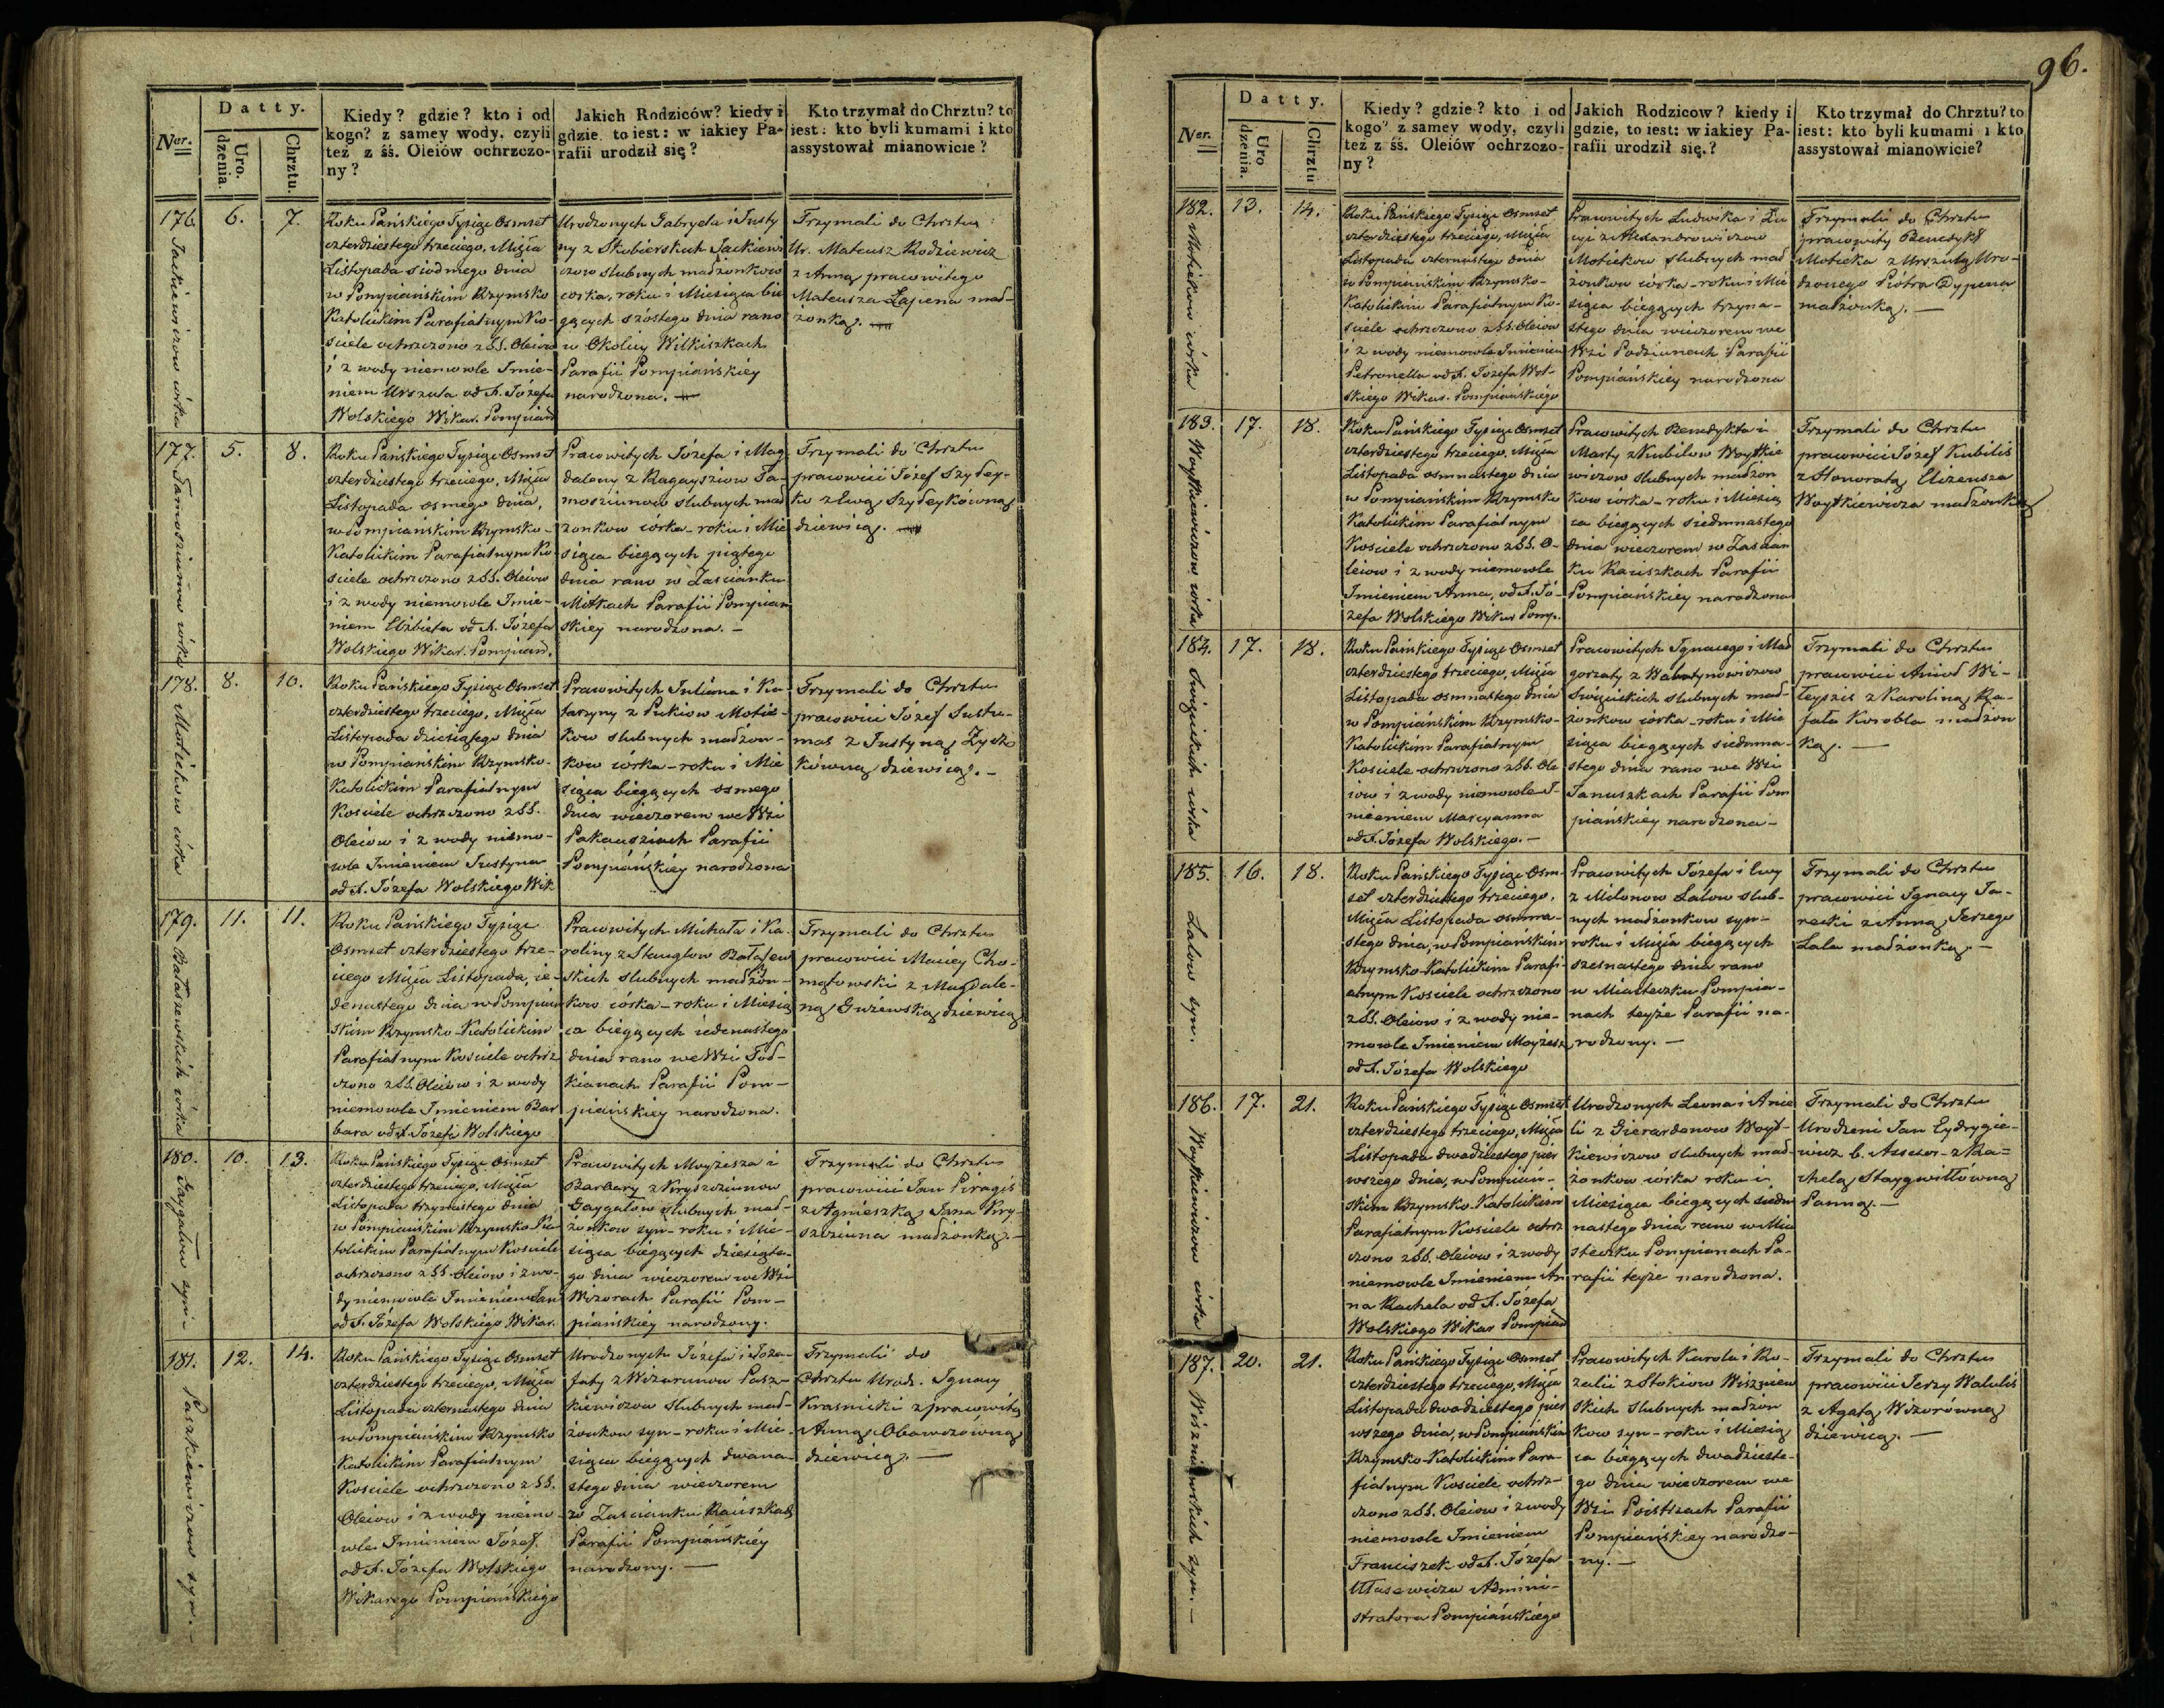 96.
Datty.
Ner.
Uro.
dzenia.
Chrztu.
Kiedy? gdzie? kto i od
kogo? z samey wody, czyli
też z śś. Oleiów ochrzczo-
ny?
Jakich Rodziców? kiedy i
gdzie, to iest: w iakiey Pa-
rafii urodził się?
Kto trzymał do Chrztu? to
iest: kto byli kumami i kto
assystował mianowicie?
176.
6.
7.
Roku Pańskiego Tysiąc Osmset
czterdziestego trzeciego, Msca
Listopada siodmego dnia
w Pompiańskim Rzymsko
Katolickim Parafialnym Ko-
sciele ochrzczono z SS. Oleiow
i z wody niemowle Imie-
niem Urszula od X. Józefa
Wolskiego Wikar. Pompiań
Urodzonych Gabryela i Justy
ny z Skubierskich Jackiewi
czow slubnych małżonkow
corka, roku i Miesiąca bie
gących szóstego dnia rano
w Okolicy Wilkiszkach
Parafii Pompiańskiey
narodzona.
Trzymali do Chrztu
Ur. Mateusz Rodziewicz
z Anną pracowitego
Mateusza Łapiena mał-
żonką.
177.
5.
8.
Roku Pańskiego Tysiąc Osmset
czterdziestego trzeciego, Msca
Listopada osmego dnia,
w Pompiańskim Rzymsko-
Katolickim Parafialnym Ko
sciele ochrzczono z SS. Oleiow
i z wody niemowle Imie-
niem Elżbieta od X. Józefa
Wolskiego Wikar. Pompiań.
Pracowitych Józefa i Mag
daleny z Ragayziow Ta-
mosziunow slubnych mał
żonkow corka - roku i Mie
siąca biegących piątego
dnia rano w Zascianku
Mitkach Parafii Pompiań
skiey narodzona. -
Trzymali do Chrztu
pracowici Józef Szydey-
ko z Ewą Szydeykówną
dziewicą.
178.
8.
10.
Roku Pańskiego Tysiąc Osmset
czterdziestego trzeciego, Msca
Listopada dziesiątego dnia
w Pompiańskim Rzymsko-
Katolickim Parafialnym
Kosciele ochrzczono z SS.
Oleiow i z wody niemo-
wle Imieniem Justyna
od X. Józefa Wolskiego Wik
Pracowitych Juliana i Ka
tarzyny z Pukiow Motie-
kow slubnych małżon-
kow córka - roku i Mie
siąca biegących osmego
dnia wieczorem we Wsi
Pakausziach Parafii
Pompiańskiey narodzona
Trzymali do Chrztu
pracowici Józef Justu-
mas z Justyną Życz
kówną dziewicą. -
179.
11.
11.
Roku Pańskiego Tysiąc
Osmset czterdziestego trze-
ciego Msca Listopada, ie-
denastego dnia w Pompiań
skim Rzymsko-Katolickim
Parafialnym Kosciele ochrz
czono z SS. Oleiow i z wody
niemowle Imieniem Bar
bara od X. Józefa Wolskiego
Pracowitych Michała i Ka-
roliny z Stauglow Bałaszew
skich slubnych małżon-
kow córka - roku i Miesią
ca biegących iedenastego
dnia rano we Wsi Tod-
kianach Parafii Pom-
piańskiey narodzona.
Trzymali do Chrztu
pracowici Maciey Cho-
mątowski z Magdale-
ną Gużewską dziewicą
180.
10.
13.
Roku Pańskiego Tysiąc Osmset
czterdziestego trzeciego, Msca
Listopada trzynastego dnia
w Pompiańskim Rzymsko Ka
tolickim Parafialnym Kosciele
ochrzczono z SS. Oleiow i z wo-
dy niemowle Imieniem Jan
od X. Józefa Wolskiego Wikar.
Pracowitych Moyżesza i
Barbary z Kryszcziunow
Gaygałow slubnych mał-
żonkow syn - roku i Mie-
siąca biegących dziesiąte-
go dnia wieczorem we Wsi
Wizorach Parafii Pom-
piańskiey narodzony.
Trzymali do Chrztu
pracowici Jan Piragis
z Agnieszką Jana Kry-
szcziuna małżonką. -
181.
12.
14.
Roku Pańskiego Tysiąc Osmset
czterdziestego trzeciego, Msca
Listopada czternastego dnia
w Pompiańskim Rzymsko
Katolickim Parafialnym
Kosciele ochrzczono z SS.
Oleiow i z wody niemo-
wle Imieniem Józef.
od X. Józefa Wolskiego
Wikarego Pompiańskiego
Urodzonych Józefa i Joza-
faty z Wizarunow Pasz-
kiewiczow slubnych mał-
żonkow syn - roku i Mie-
siąca biegących dwana-
stego dnia wieczorem
w Zascianku Rauszkach
Parafii Pompiańskiéy
narodzony. -
Trzymali do
Chrztu Urodz. Ignacy
Krasnicki z pracowitą
Anną Obawczówną
dziewicą. -
Jackiewiczow córka
Tamosziunow córka
Motiekow córka
Bałaszewskich córka
Gaygałow syn -
Paszkiewiczow syn. -
Datty.
Ner.
Uro
dzenia.
Chrztu
Kiedy? gdzie? kto i od
kogo? z samey wody, czyli
też z śś. Oleiów ochrzczo-
ny?
Jakich Rodzicow? kiedy i
gdzie, to iest: w iakiey Pa-
rafii urodził się.?
Kto trzymał do Chrztu? to
iest: kto byli kumami i kto
assystował mianowicie?
182.
13.
14.
Roku Pańskiego Tysiąc Osmset
czterdziestego trzeciego, Msca
Listopada czternastego dnia
w Pompiańskim Rzymsko-
Katolickim Parafialnym Ko-
sciele ochrzczono z SS. Oleiow
i z wody niemowle Imieniem
Petronella od X. Józefa Wol-
skiego Wikar. Pompiańskiego
Pracowitych Ludwika i Łu
cyi z Alexandrowiczow
Motiekow slubnych mał
żonkow córka - roku i Mie
siąca biegących trzyna-
stego dnia wieczorem we
Wsi Podziunach Parafii
Pompiańskiey narodzona
Trzymali do Chrztu
pracowity Benedykt
Motieka z Urszulą Uro-
dzonego Piotra Dyppena
małżonką. -
183.
17.
18.
Roku Pańskiego Tysiąc Osmset
czterdziestego trzeciego, Msca
Listopada osmnastego dnia
w Pompiańskim Rzymsko
Katolickim Parafialnym
Kosciele ochrzczono z SS. O-
leiow i z wody niemowle
Imieniem Anna, od X. Jó-
zefa Wolskiego Wikar Pomp.
Pracowitych Benedykta i
Marty z Kubilow Woytkie
wiczow slubnych małżon
kow corka - roku i Miesią
ca biegących siedmnastego
dnia wieczorem w Zascian
ku Rauszkach Parafii
Pompiańskiey narodzona
Trzymali do Chrztu
pracowici Józef Kubilis
z Honoratą Elizeusza
Woytkiewicza małżonką
184.
17.
18.
Roku Pańskiego Tysiąc Osmset
czterdziestego trzeciego, Msca
Listopada osmnastego dnia
w Pompiańskim Rzymsko-
Katolickim Parafialnym
Kosciele ochrzczono z SS. Ole
iow i z wody niemowle I-
mieniem Maryanna
od X. Józefa Wolskiego. -
Pracowitych Ignacego i Mał
gorzaty z Walentynowiczow
Swięcickich slubnych mał-
żonkow córka - roku i Mie
siąca biegących siedmna-
stego dnia rano we Wsi
Januszkach Parafii Pom
piańskiéy narodzona -
Trzymali do Chrztu
pracowici Anioł Wi-
łeyszis z Karoliną Ra-
fała Korobla małżon
ką. -
185.
16.
18.
Roku Pańskiego Tysiąc Osm-
set czterdziestego trzeciego,
Msca Listopada osmna-
stego dnia, w Pompiańskim
Rzymsko-Katolickim Parafi-
alnym Kosciele ochrzczono
z SS. Oleiow i z wody nie-
mowle Imieniem Moyżesz
od X. Józefa Wolskiego
Pracowitych Józefa i Ewy
z Milonow Lalow slub-
nych małżonkow syn-
roku i Msca biegących
szesnastego dnia rano
w Miasteczku Pompia-
nach teyże Parafii na-
rodzony. -
Trzymali do Chrztu
pracowici Ignacy Ja-
recki z Anną Jerzego
Lala małżonką. -
186.
17.
21.
Roku Pańskiego Tysiąc Osmset
czterdziestego trzeciego, Msca
Listopada dwadziestego pier
wszego dnia, w Pompiań-
skim Rzymsko-Katolickim
Parafialnym Kosciele ochrz
czono z SS. Oleiow i z wody
niemowle Imieniem An
na Rachela od X. Józefa
Wolskiego Wikar Pompiań
Urodzonych Leona i Anie
li z Gierardonow Woyt-
kiewiczow slubnych mał-
żonkow córka roku i
Miesiąca biegących siedm
nastego dnia rano w Mia
steczku Pompianach Pa-
rafii teyże narodzona.
Trzymali do Chrztu
Urodzeni Jan Eydrygie-
wicz b. Assesor - z Ra=
chelą Staygwiłłówną
Panną. -
187.
20.
21.
Roku Pańskiego Tysiąc Osmset
czterdziestego trzeciego, Msca
Listopada dwadziestego pier
wszego dnia, w Pompiańskim
Rzymsko-Katolickim Para-
fialnym Kosciele ochrz-
czono z SS. Oleiow i z wody
niemowle Imieniem
Franciszek od X. Józefa
Ułasewicza Admini-
stratora Pompiańskiego
Pracowitych Karola i Ro-
zalii z Stokiow Wiszniew
skich slubnych małżon
kow syn - roku i Miesią
ca biegących dwadzieste-
go dnia wieczorem we
Wsi Poistrach Parafii
Pompiańskiey narodzo-
ny. -
Trzymali do Chrztu
pracowici Jerzy Walulis
z Agatą Wizorówną
dziewicą. -
Motiekow córka
Woytkiewiczow córka
Swięcickich córka
Lalow syn.
Woytkiewiczow córka
Wiszniewskich syn. -